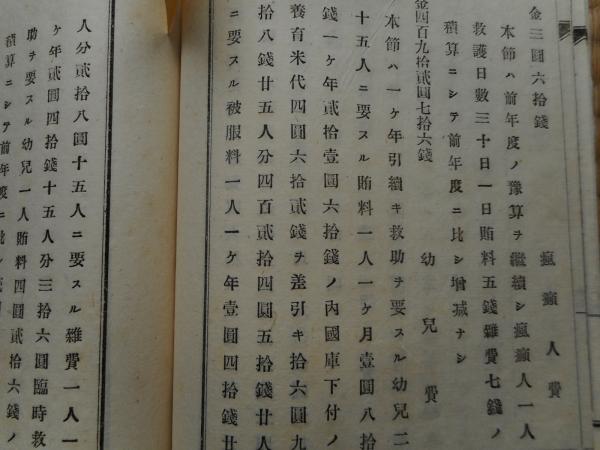 瘋癲人費
金三圓六拾錢
本節ハ前年度ノ豫算ヲ繼續シ瘋癲人一人
救護日數三十日一日賄料五錢雜費七錢ノ
積算ニシテ前年度ニ比シ增減ナシ
幼兒費
金四百九拾貳圓七拾六錢
本節ハ一ケ年引續キ救助ヲ要スル幼兒二
十五人ニ要スル賄料一人一ケ月壹圓八拾
錢一ケ年貳拾壹圓六拾錢ノ內國庫下付ノ
養育米代四圓六拾貳錢ヲ差引キ拾六圓九
拾八錢廿五人分四百貳拾四圓五拾錢廿人
ニ要スル被服料一人一ケ年壹圓四拾錢廿
人分貳拾八圓十五人ニ要スル雜費一人一
ケ年貳圓四拾錢十五人分三拾六圓臨時救
助ヲ要スル幼兒一人賄料四圓貳拾六錢ノ
積算ニシテ前年度ニ比シ